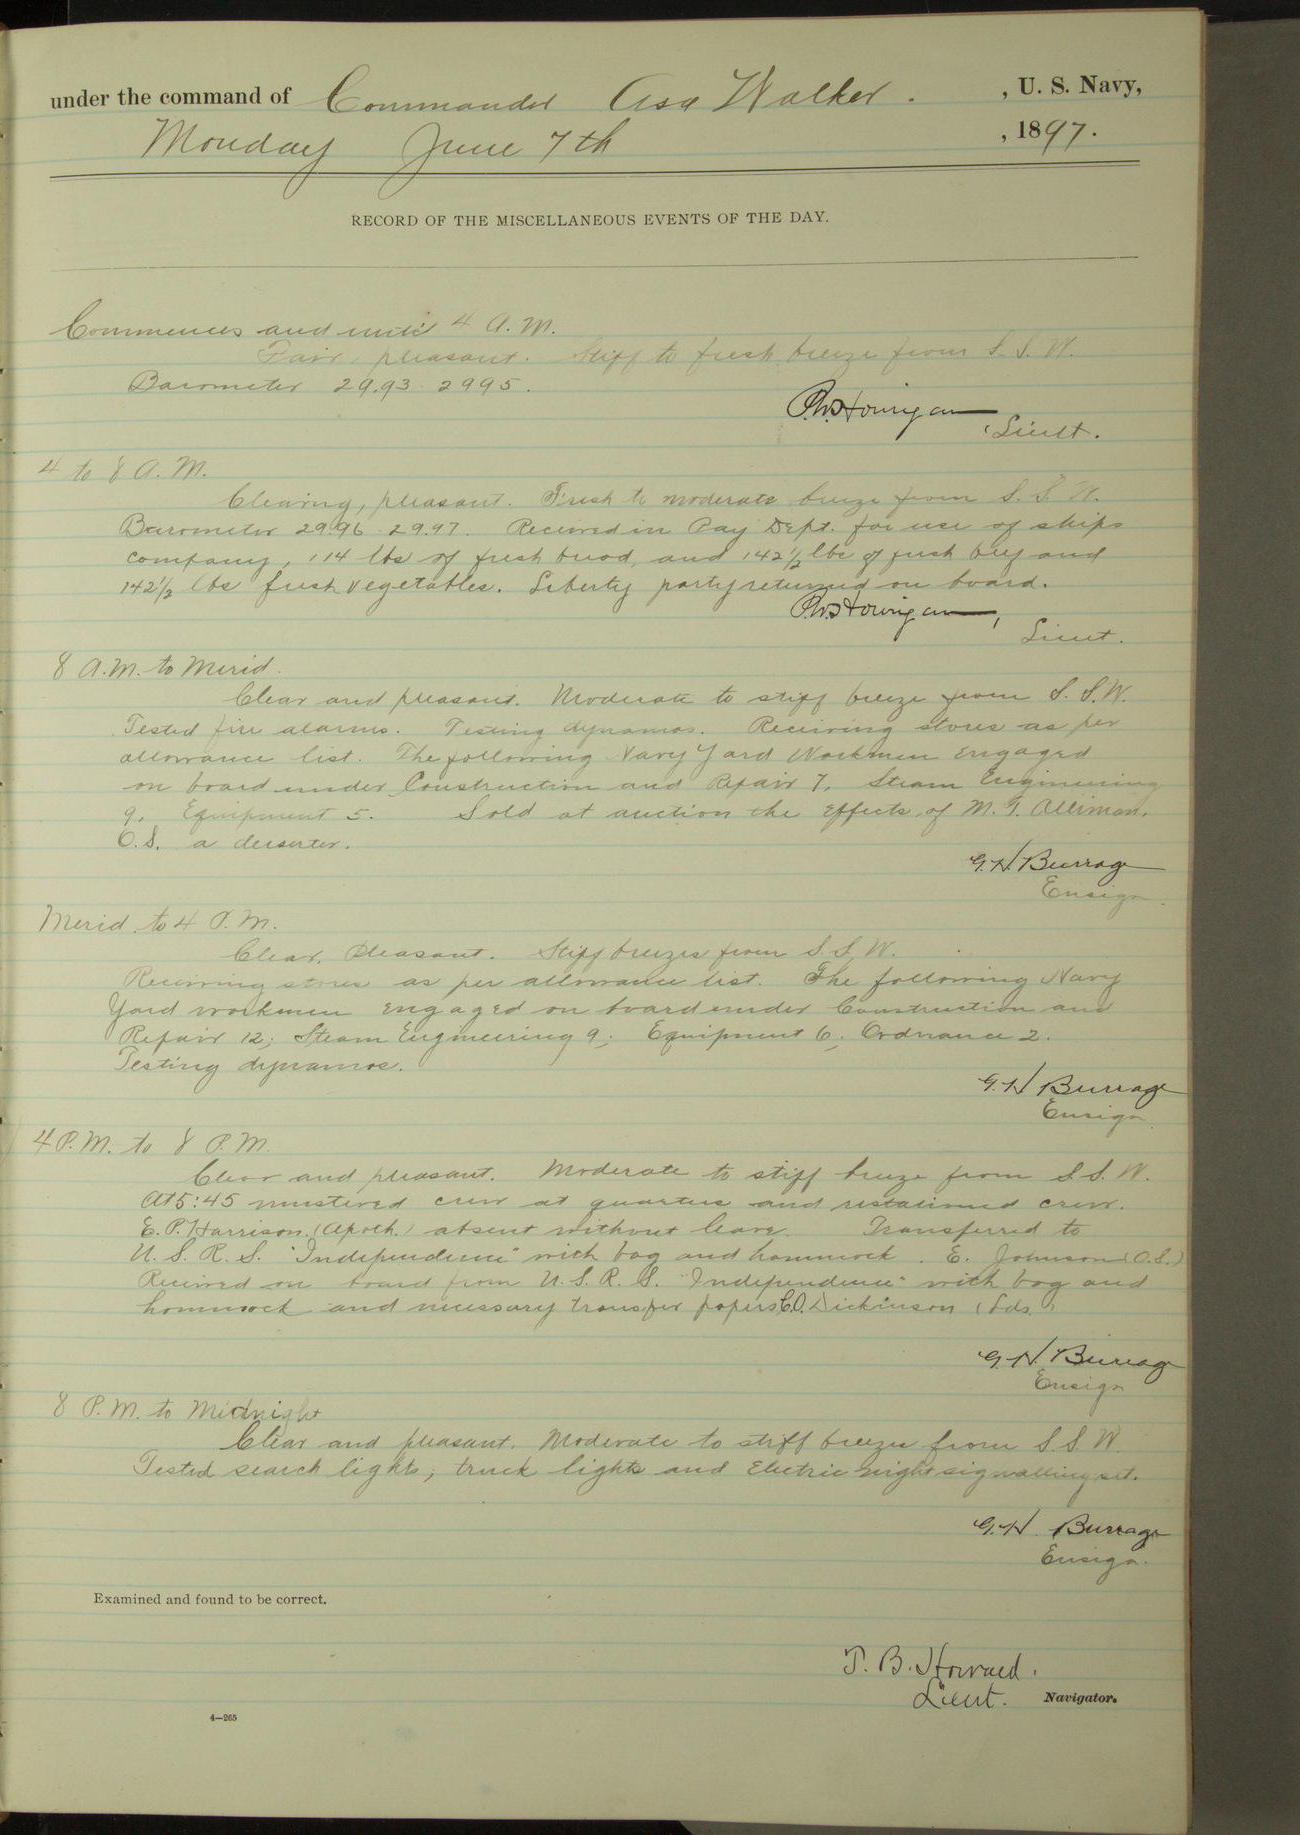 under the command of Commander Asa Walker. , U. S. Navy,
Monday June 7th , 1897.
RECORD OF THE MISCELLANEOUS EVENTS OF THE DAY.
Commences and until 4 A.M.
Fair, pleasant. Stiff to fresh breeze from S.S.W.
Barometer 29.93 2995.
P.W. Hourigan
Lieut.
4 to 8 A.M.
Clearing, pleasant. Fresh to moderate breeze from S.S.W.
Barometer 29.96 29.97. Received in Pay Dept. for use of ships
company, 114 lbs of fresh bread, and 142 1/2 lbs of fresh beef and
142 1/2 lbs fresh vegetables. Liberty party returned on board.
P.W. Hourigan,
Lieut.
8 A.M. to Merid.
Clear and pleasant. Moderate to stiff breeze from S.S.W.
Tested fire alarms. Testing dynamos. Receiving stores as per
allowance list. The following Navy Yard Workmen engaged
on board under Construction and Repair 7, Steam Engineering
9, Equipment 5. Sold at auction the effects of M. T. Alliman,
O.S. a deserter.
G.H. Burrage
Ensign.
Merid. to 4 P.M.
Clear, Pleasant. Stiff breezes from S.S.W.
Receiving stores as per allowance list. The following Navy
Yard workmen engaged on board under Construction and
Repair 12; Steam Engineering 9; Equipment 6; Ordnance 2.
Testing dynamos.
G.H. Burrage
Ensign.
4 P.M. to 8 P.M.
Clear and pleasant. Moderate to stiff breeze from S.S.W.
At 5:45 mustered crew at quarters and restationed crew.
E.P. Harrison (Apoth.) absent without leave. Transferred to
U.S.R.S. "Independence" with bag and hammock. E. Johnson (O.S.)
Received on board from U.S.R.S. "Independence" with bag and
hammock and necessary transfer papers C.O. Dickinson (Lds.)
G.H. Burrage
Ensign
8 P.M. to Midnight
Clear and pleasant. Moderate to stiff breeze from S.S.W.
Tested search lights, truck lights and Electric night signalling set.
G.H. Burrage
Ensign.
Examined and found to be correct.
T. B. Howard.
Lieut. Navigator.
4—265